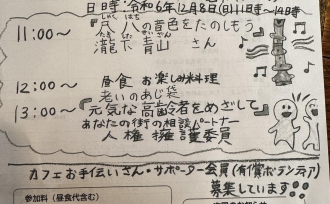 日時:令和6年12月8日(日)11時〜14時
しゃくはち
11:00〜 『尺八の音色をたのしもう
瀧下 青山 さん
12:00〜 昼食 お楽しみ料理
老いのあじ袋
13:00〜 『元気な高齢者をめざして』
あなたの街の相談パートナー
人権擁護委員
カフェお手伝いさん・サポーター会員(有償ボランティア)
募集しています!!
参加料(昼食代含む)